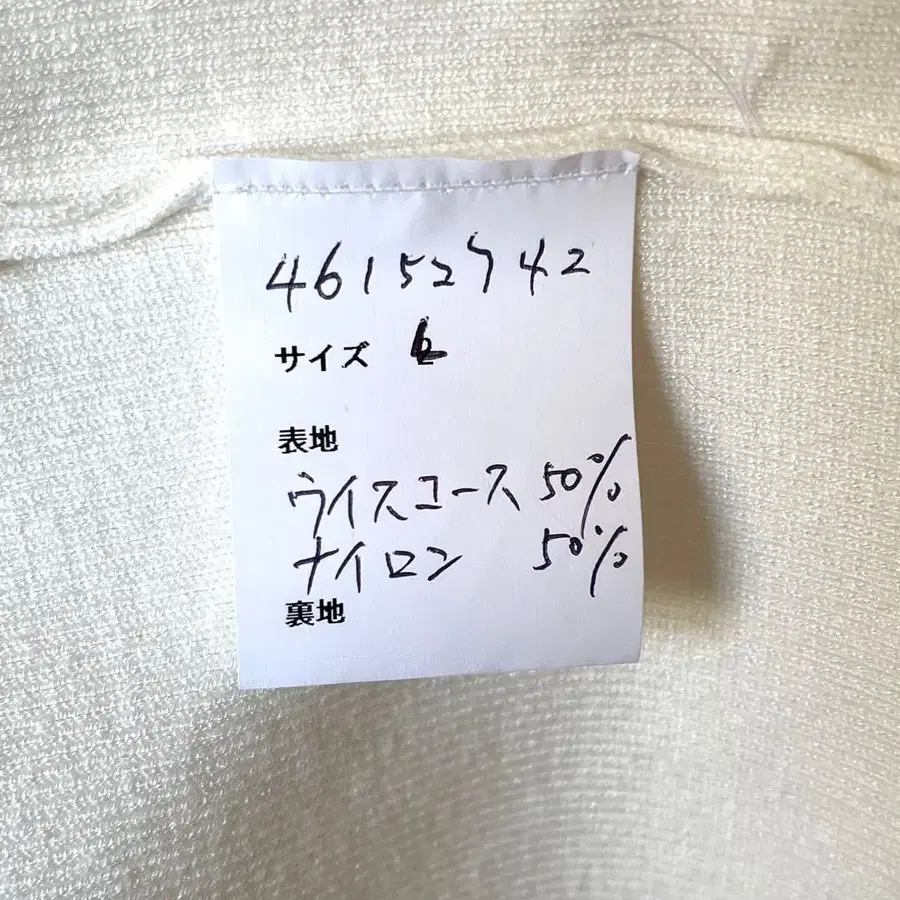 46152742
サイズ L
表地
ウイスコース 50%
ナイロン 50%
裏地